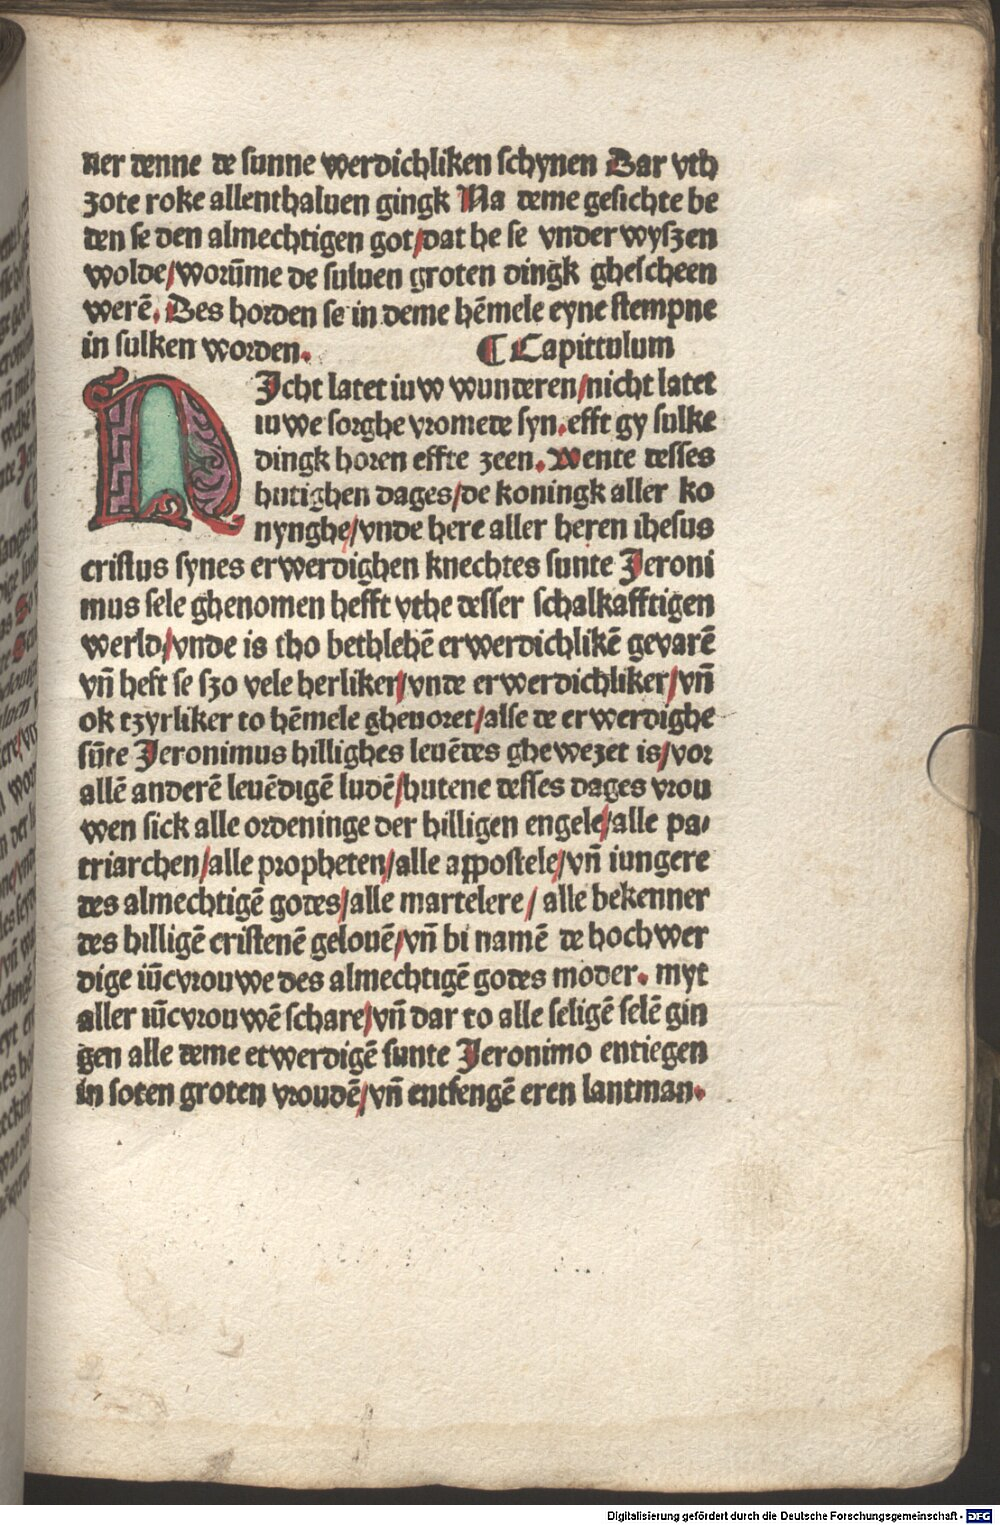 ner denne de sunne werdichliken schynen Dar vth
zote roke allenthaluen gingk Na deme gesichte be
den se den almechtigen got/dat he se vnder wyszen
wolde/worūme de suluen groten dingk ghescheen
werē. Des horden se in deme hēmele eyne stempne
in sulken worden. ¶ Capittulum
NIcht latet iuw wunderen/nicht latet
iuwe sorghe vromede syn. efft gy sulke
dingk horen effte zeen. Wente desses
hutighen dages/de koningk aller ko
nynghe/vnde here aller heren ihesus
cristus synes erwerdighen knechtes sunte Jeroni
mus sele ghenomen hefft vthe desser schalkafftigen
werld/vnde is tho bethlehē erwerdichlikē gevarē
vn̄ heft se szo vele herliker/vnde erwerdichliker/vn̄
ok tzyrliker to hēmele gheuoret/alse de erwerdighe
sūte Jeronimus hillighes leuēdes ghewezet is/vor
allē anderē leuēdigē ludē/hutene desses dages vrou
wen sick alle ordeninge der hilligen engele/alle pa-
triarchen/alle propheten/alle appostele/vn̄ iungere
des almechtigē godes/alle martelere/ alle bekenner
des hilligē cristenē gelouē/vn̄ bi namē de hochwer
dige iūcvrouwe des almechtigē godes moder. myt
aller iūcvrouwē schare/vn̄ dar to alle seligē selē gin
gen alle deme erwerdigē sunte Jeronimo entiegen
in soten groten vroudē/vn̄ entfengē eren lantman.
Digitalisierung gefördert durch die Deutsche Forschungsgemeinschaft - DFG